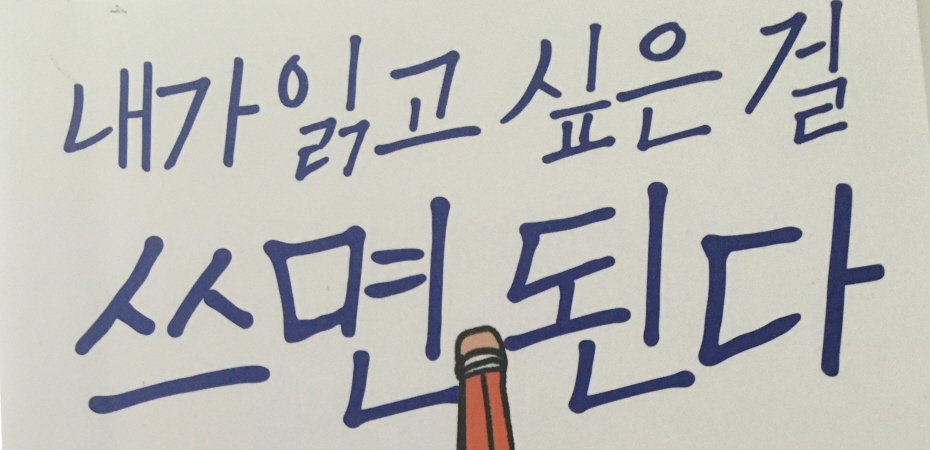 내가 읽고 싶은 걸
쓰면 된다